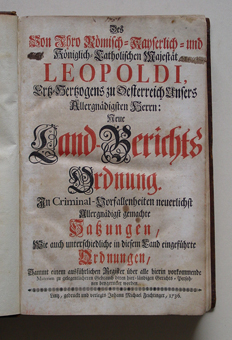 Des
Von Ihro Römisch-Kayserlich- und
Königlich-Catholischen Majestät
LEOPOLDI,
Ertz-Hertzogens zu Oesterreich Unsers
Allergnädigsten Herrn:
Neue
Land-Gerichts
Ordnung.
In Criminal-Vorfallenheiten neuerlichst
Allergnädigst gemachte
Satzungen/
Wie auch unterschiedliche in diesem Land eingeführte
Ordnungen/
Sammt einem ausführlichen Register über alle hierin vorkommende
Lintz, gedruckt und verlegts Johann Michael Feichtinger, 1736.